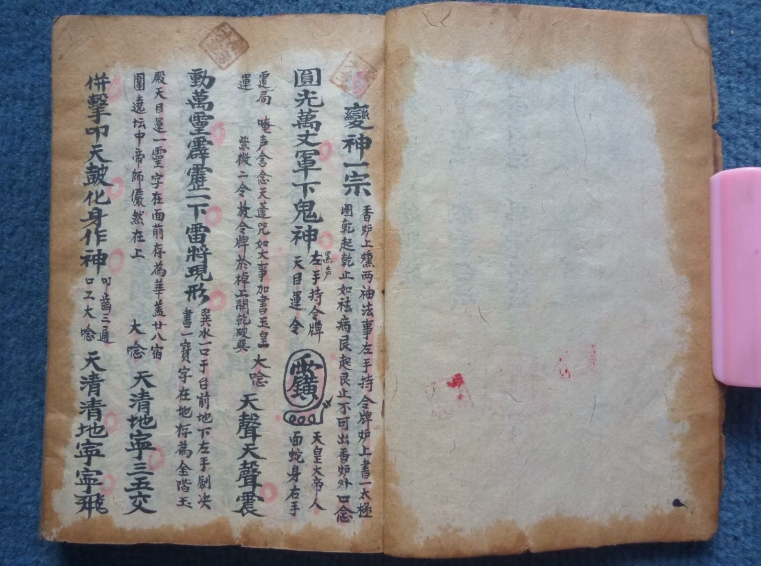 變神一宗
香炉上燻两袖法事左手持令牌炉上書一太極
圈乾起乾止如祛病艮起艮止不可出香炉外口念
圓光萬丈軍下鬼神
左手持令牌
黑声
天目運令
天皇大帝人
面蛇身右手
唵声念念天蓬咒如大事加書玉皇
運 紫微二令放令牌於棹上開乾閉巽
大念
天聲天聲震
動萬靈霹靂一下雷將現形
巽水一口于台前地下左手劍决
書一寶字在地存為金階玉
殿天目運一靈字在面前存為華盖廿八宿
圍遶坛中帝師儼然在上
大念
天清地寧三五交
併擊叩天鼓化身作神
叩齒三通
口工大念
天清清地寧寧飛